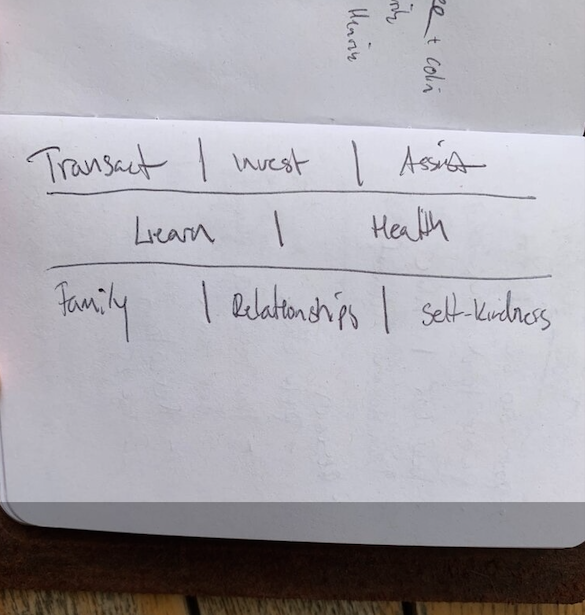 + Colin
Henrik
Transact | Invest | Assist
Learn | Health
Family | Relationships | Self-Kindness